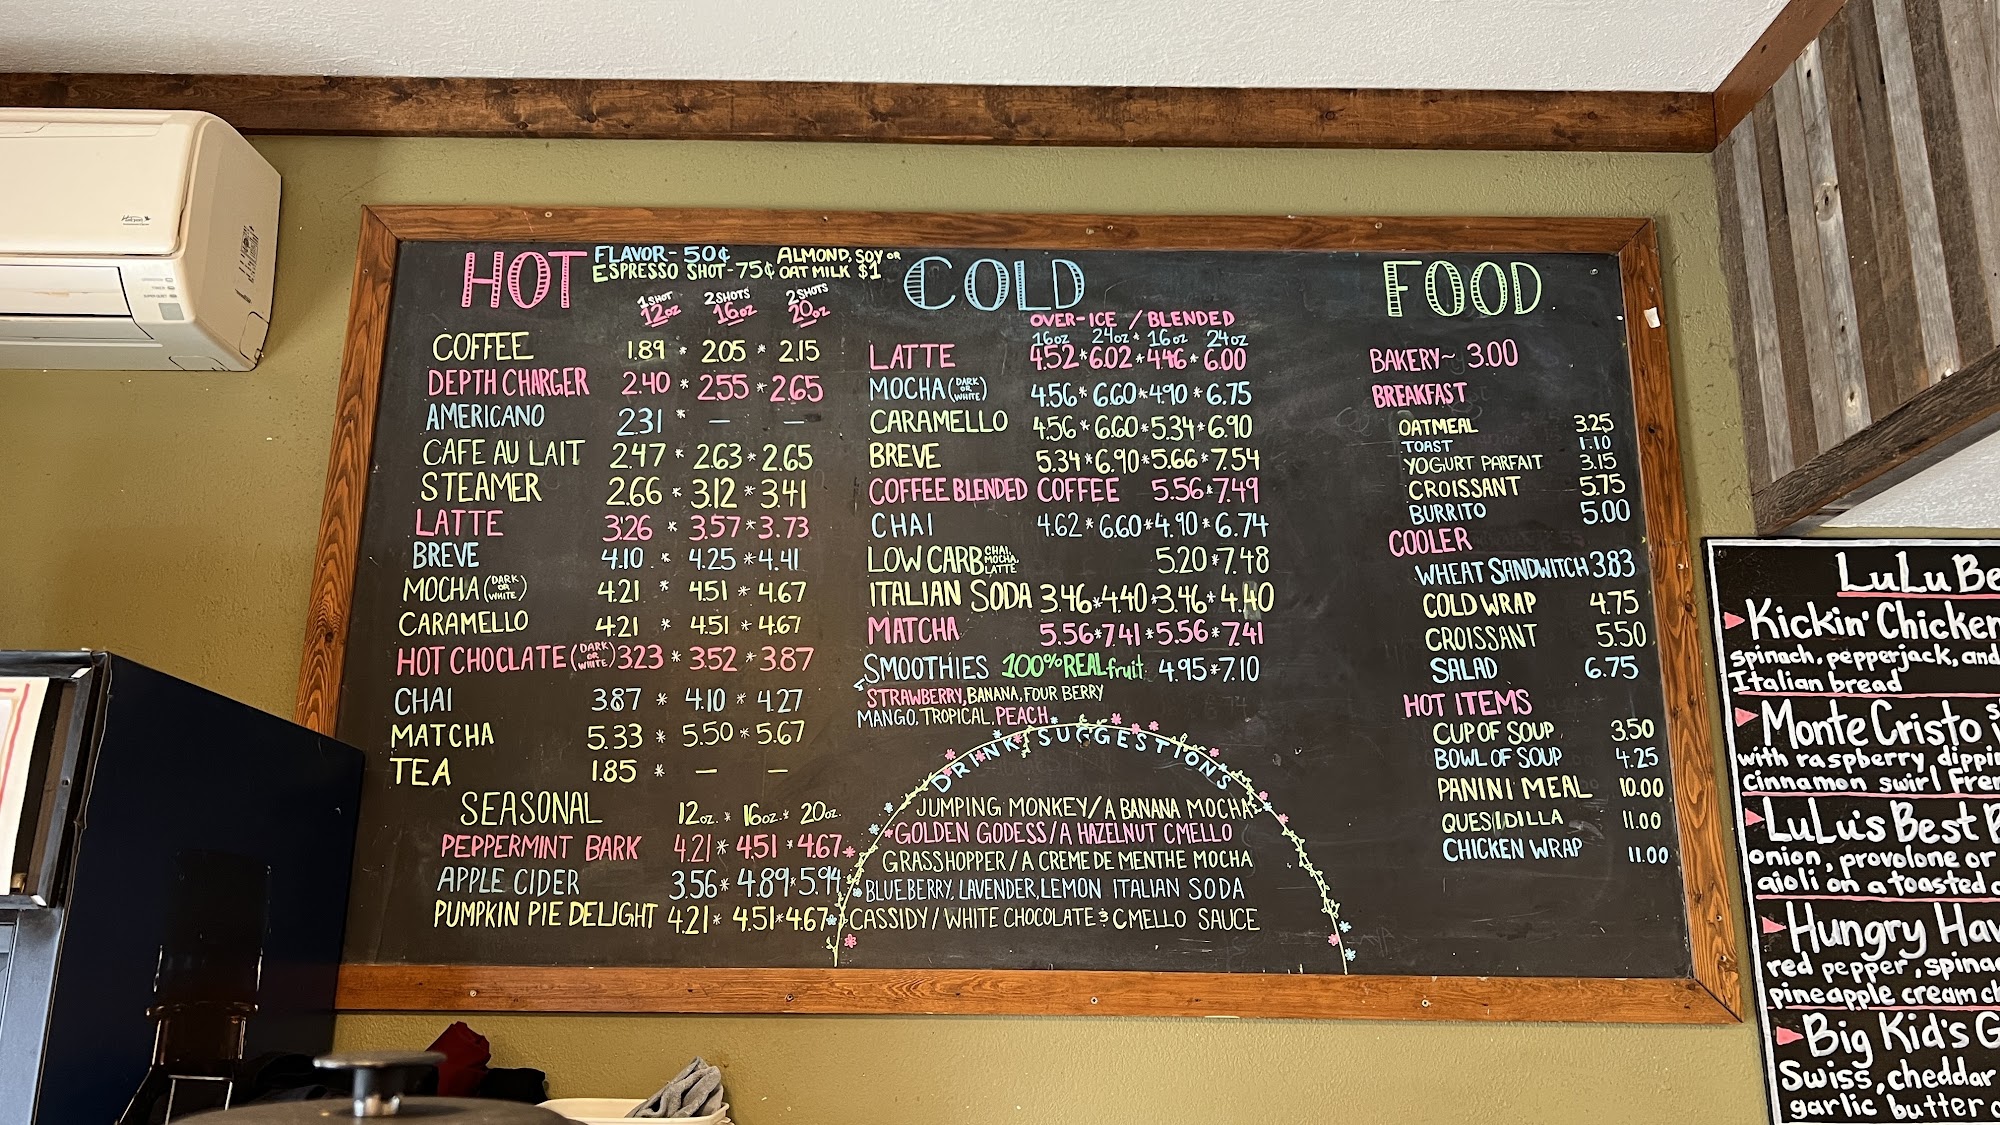 HOT
FLAVOR- 50¢
ESPRESSO SHOT-75¢
ALMOND, SOY OR
OAT MILK $1
1 SHOT 2 SHOTS 2 SHOTS
12oz 16oz 20oz
COFFEE 1.89 * 2.05 * 2.15
DEPTH CHARGER 2.40 * 2.55 * 2.65
AMERICANO 2.31 * — —
CAFE AU LAIT 2.47 * 2.63 * 2.65
STEAMER 2.66 * 3.12 * 3.41
LATTE 3.26 * 3.57 * 3.73
BREVE 4.10 * 4.25 * 4.41
MOCHA (DARK OR WHITE) 4.21 * 4.51 * 4.67
CARAMELLO 4.21 * 4.51 * 4.67
HOT CHOCLATE (DARK OR WHITE) 3.23 * 3.52 * 3.87
CHAI 3.87 * 4.10 * 4.27
MATCHA 5.33 * 5.50 * 5.67
TEA 1.85 * — —
SEASONAL 12oz. * 16oz. * 20oz.
PEPPERMINT BARK 4.21 * 4.51 * 4.67
APPLE CIDER 3.56 * 4.89 * 5.94
PUMPKIN PIE DELIGHT 4.21 * 4.51 * 4.67
COLD
OVER-ICE / BLENDED
16oz 24oz * 16oz 24oz
LATTE 4.52 * 6.02 * 4.46 * 6.00
MOCHA (DARK OR WHITE) 4.56 * 6.60 * 4.90 * 6.75
CARAMELLO 4.56 * 6.60 * 5.34 * 6.90
BREVE 5.34 * 6.90 * 5.66 * 7.54
COFFEE BLENDED COFFEE 5.56 * 7.49
CHAI 4.62 * 6.60 * 4.90 * 6.74
LOW CARB CHAI MOCHA LATTE 5.20 * 7.48
ITALIAN SODA 3.46 * 4.40 * 3.46 * 4.40
MATCHA 5.56 * 7.41 * 5.56 * 7.41
SMOOTHIES 100% REAL fruit 4.95 * 7.10
STRAWBERRY, BANANA, FOUR BERRY
MANGO, TROPICAL, PEACH
DRINK SUGGESTIONS
JUMPING MONKEY / A BANANA MOCHA
GOLDEN GODESS / A HAZELNUT CMELLO
GRASSHOPPER / A CREME DE MENTHE MOCHA
BLUEBERRY, LAVENDER, LEMON ITALIAN SODA
CASSIDY / WHITE CHOCOLATE & CMELLO SAUCE
FOOD
BAKERY~ 3.00
BREAKFAST
OATMEAL 3.25
TOAST 1.10
YOGURT PARFAIT 3.15
CROISSANT 5.75
BURRITO 5.00
COOLER
WHEAT SANDWITCH 3.83
COLD WRAP 4.75
CROISSANT 5.50
SALAD 6.75
HOT ITEMS
CUP OF SOUP 3.50
BOWL OF SOUP 4.25
PANINI MEAL 10.00
QUESIDILLA 11.00
CHICKEN WRAP 11.00
LuLu Be
Kickin' Chicken
spinach, pepperjack, and
Italian bread
Monte Cristo
with raspberry dippi
cinnamon swirl Fren
LuLu's Best
onion, provolone or
aioli on a toasted
Hungry Haw
red pepper, spina
pineapple cream ch
Big Kid's G
Swiss, cheddar
garlic butter